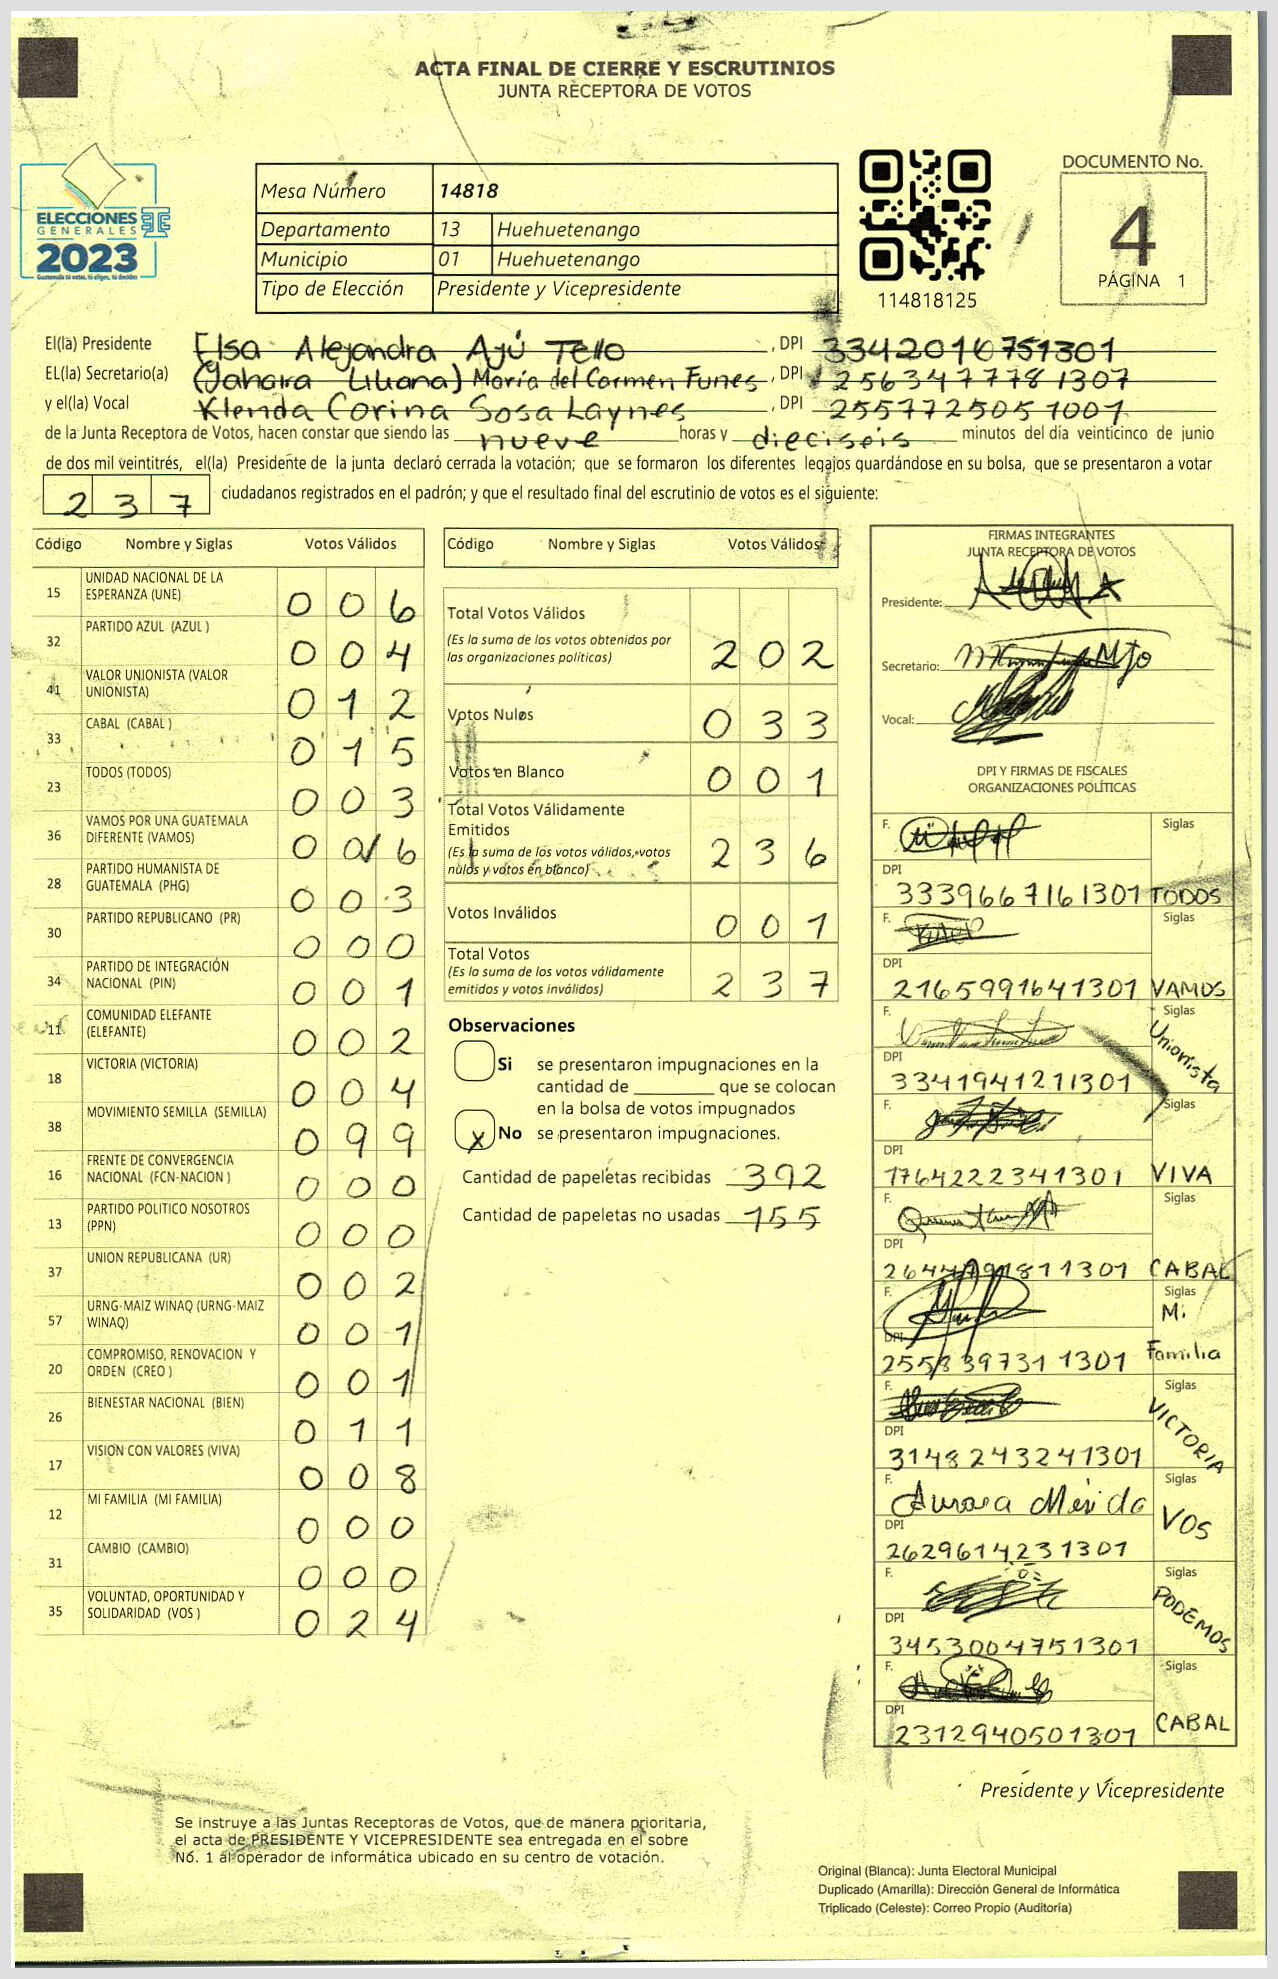 ACTA FINAL DE CIERRE Y ESCRUTINIOS
JUNTA RECEPTORA DE VOTOS
ELECCIONES
GENERALES
2023
Guatemala tú votas, tú eliges, tú decides
Mesa Número 14818
Departamento 13 Huehuetenango
Municipio 01 Huehuetenango
Tipo de Elección Presidente y Vicepresidente
114818125
DOCUMENTO No.
4
PÁGINA 1
El(la) Presidente Elsa Alejandra Ayú Tello, DPI 3342010751301
EL(la) Secretario(a) (Yahaira Liliana) María del Carmen Funes, DPI 2563477781307
y el(la) Vocal Klenda Corina Sosa Laynes, DPI 2557725051001
de la Junta Receptora de Votos, hacen constar que siendo las nueve horas y dieciseis minutos del día veinticinco de junio
de dos mil veintitrés, el(la) Presidente de la junta declaró cerrada la votación; que se formaron los diferentes legajos guardándose en su bolsa, que se presentaron a votar
237 ciudadanos registrados en el padrón; y que el resultado final del escrutinio de votos es el siguiente:
Código Nombre y Siglas Votos Válidos
15 UNIDAD NACIONAL DE LA ESPERANZA (UNE) 006
32 PARTIDO AZUL (AZUL ) 004
41 VALOR UNIONISTA (VALOR UNIONISTA) 012
33 CABAL (CABAL ) 015
23 TODOS (TODOS) 003
36 VAMOS POR UNA GUATEMALA DIFERENTE (VAMOS) 006
28 PARTIDO HUMANISTA DE GUATEMALA (PHG) 003
30 PARTIDO REPUBLICANO (PR) 000
34 PARTIDO DE INTEGRACIÓN NACIONAL (PIN) 001
11 COMUNIDAD ELEFANTE (ELEFANTE) 002
18 VICTORIA (VICTORIA) 004
38 MOVIMIENTO SEMILLA (SEMILLA) 099
16 FRENTE DE CONVERGENCIA NACIONAL (FCN-NACION ) 000
13 PARTIDO POLITICO NOSOTROS (PPN) 000
37 UNION REPUBLICANA (UR) 002
57 URNG-MAIZ WINAQ (URNG-MAIZ WINAQ) 001
20 COMPROMISO, RENOVACION Y ORDEN (CREO ) 001
26 BIENESTAR NACIONAL (BIEN) 011
17 VISION CON VALORES (VIVA) 008
12 MI FAMILIA (MI FAMILIA) 000
31 CAMBIO (CAMBIO) 000
35 VOLUNTAD, OPORTUNIDAD Y SOLIDARIDAD (VOS ) 024
Código Nombre y Siglas Votos Válidos
Total Votos Válidos 202
(Es la suma de los votos obtenidos por
las organizaciones políticas)
Votos Nulos 033
Votos en Blanco 001
Total Votos Válidamente
Emitidos 236
(Es la suma de los votos válidos, votos
nulos y votos en blanco)
Votos Inválidos 001
Total Votos 237
(Es la suma de los votos válidamente
emitidos y votos inválidos)
Observaciones
Si se presentaron impugnaciones en la
cantidad de ________ que se colocan
en la bolsa de votos impugnados
X No se presentaron impugnaciones.
Cantidad de papeletas recibidas 392
Cantidad de papeletas no usadas 155
FIRMAS INTEGRANTES
JUNTA RECEPTORA DE VOTOS
Presidente:
Secretario:
Vocal:
DPI Y FIRMAS DE FISCALES
ORGANIZACIONES POLÍTICAS
F. Siglas
DPI
3339667161301 TODOS
F. Siglas
DPI
2165991641301 VAMOS
F. Siglas
Unionista
DPI
3341941211301
F. Siglas
DPI
1764222341301 VIVA
F. Siglas
DPI
2644791811301 CABAL
F. Siglas
Mi
DPI
2558397311301 Familia
F. Siglas
VICTORIA
DPI
3148243241301
F. Aurora Mérida Siglas
VOS
DPI
2629614231301
F. Siglas
PODEMOS
DPI
3453004751301
F. Siglas
DPI
2312940501301 CABAL
Presidente y Vicepresidente
Se instruye a las Juntas Receptoras de Votos, que de manera prioritaria,
el acta de PRESIDENTE Y VICEPRESIDENTE sea entregada en el sobre
No. 1 al operador de informática ubicado en su centro de votación.
Original (Blanca): Junta Electoral Municipal
Duplicado (Amarilla): Dirección General de Informática
Triplicado (Celeste): Correo Propio (Auditoría)